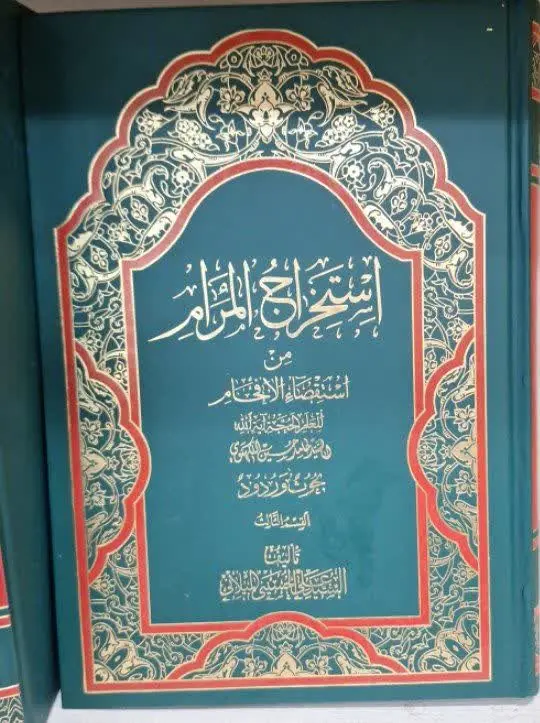 اِستِخراجُ المَرامِ
مِن
استقصاء الإفحام
للعلم الحجة آية الله
السيد حامد حسين اللكهنوي
بحوث وردود
القسم الثالث
تأليف
السيد علي الحسيني الميلاني